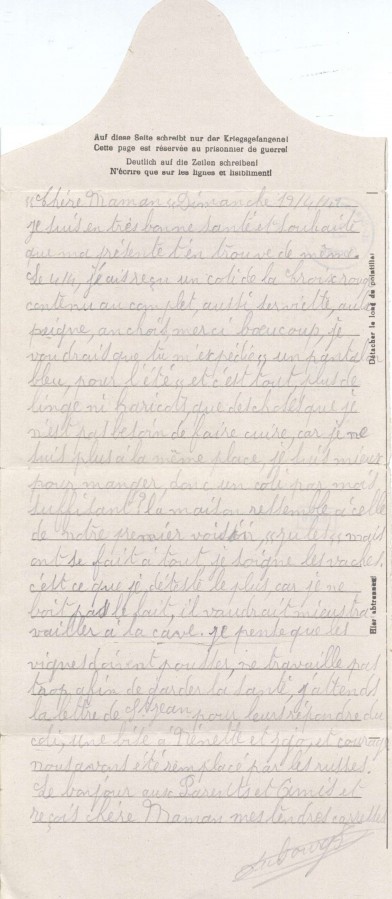 Auf diese Seite schreibt nur der Kriegsgefangene!
Cette page est réservée au prisonnier de guerre!
Deutlich auf die Zeilen schreiben!
N'écrire que sur les lignes et lisiblement!
"Chére Maman" Dimanche 19/4/
je suis en très bonne santé et souhaite
que ma présente t'en trouve de même.
Le 4/4, j'ais reçu un coli de la Croix rouge
contenu au complet, aussi serviette,
peigne, anchois, merci beaucoup, je
voudrais que tu m'expédie un pantalon
bleu, pour l'été, et c'est tout, plus de
linge ni haricots, que des choses que je
n'est pas besoin de faire cuire, car je ne
suis plus à la même place, je suis mieux
pour manger donc un coli par mois
suffisant. la maison ressemble à celle
de notre premier voisin, mais
ont se fait à tout, je soigne les vaches,
c'est ce que je déteste le plus car je ne
boit pas le lait, il vaudrait mieux tra
vailler à la cave. je pense que les
vignes doivent pousser, ne travaille pas
trop, afin de garder la santé, j'attends
la lettre de Jean pour leurs répondre du
coli, une bise à Nénette et jojo, et courage
nous avons été remplacé par les russes.
Le bonjour aux Parents et Amis et
reçois chère Maman mes tendres caresses
Détacher le long du pointillé!
Hier abtrennen!